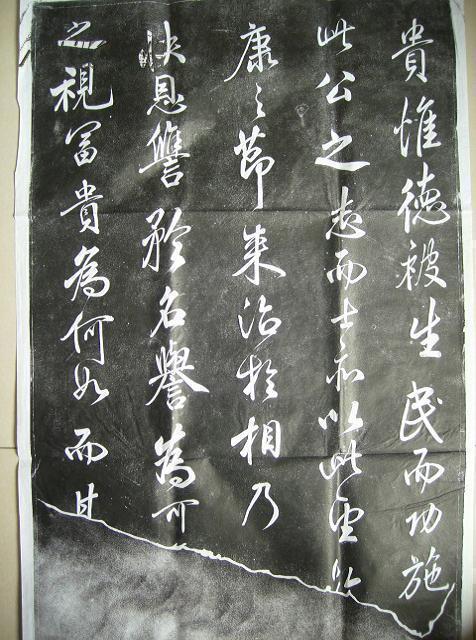 貴惟德被生民而功施
此公之志而士亦以此望於
康之節来治於相乃
快恩讎矜名譽為可
之視冨貴為何如而其